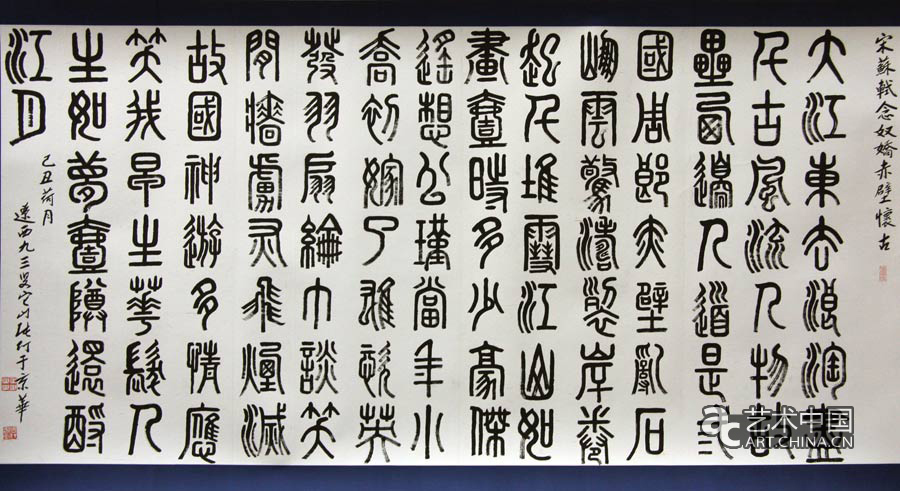 宋蘇軾念奴嬌赤壁懷古
大江東去浪淘盡
千古風流人物故
壘西邊人道是三
國周郎赤壁亂石
崩雲驚濤裂岸卷
起千堆雪江山如
畫壹時多少豪傑
遙想公瑾當年小
喬初嫁了雄姿英
發羽扇綸巾談笑
閒檣虜灰飛煙滅
故國神遊多情應
笑我早生華髮人
生如夢壹樽還酹
江月
己丑荷月
遼西九三叟 于京華
艺术中国
ART.CHINA.CN